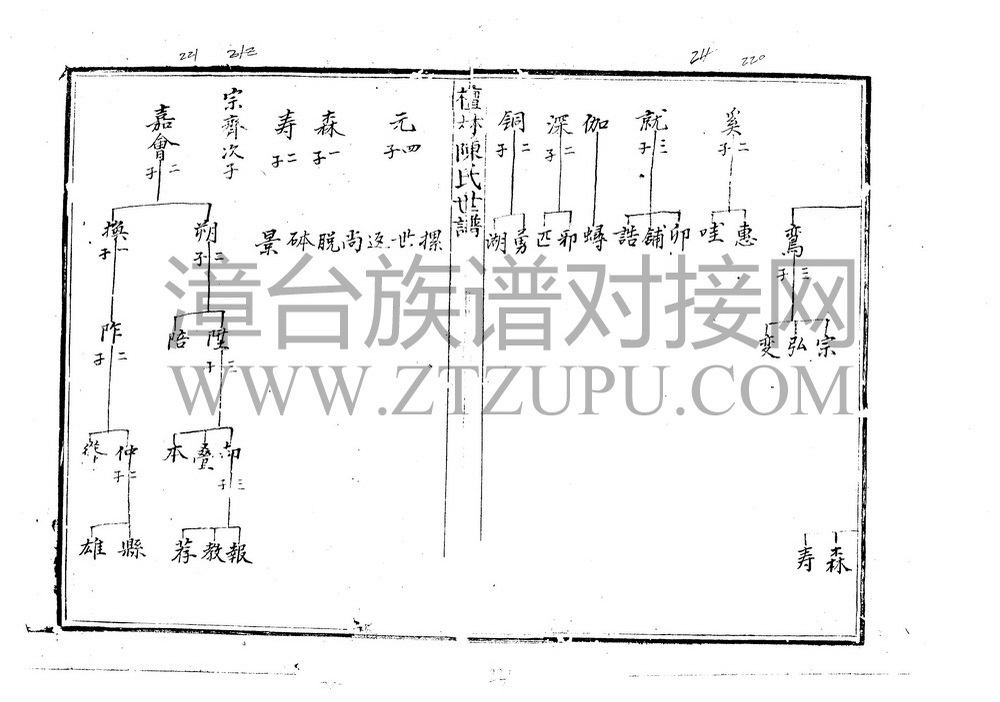 221 212 24 220
奚二子
就三子
伽
深二子
銅二子
鸞三子
惠
哇
卯
鋪
誥
蟳
邪
匹
勇
湖
宗
弘
变
森
寿
檀林陳氏世譜
元四子
森一子
寿二子
宗齊次子
嘉會二子
摞
世
返
尚
脱
砵
景
朔二子
換一子
陞三子
陪
昨二子
却三子
叠
本
仲二子
報
教
荐
縣
雄
漳台族谱对接网
WWW.ZTZUPU.COM